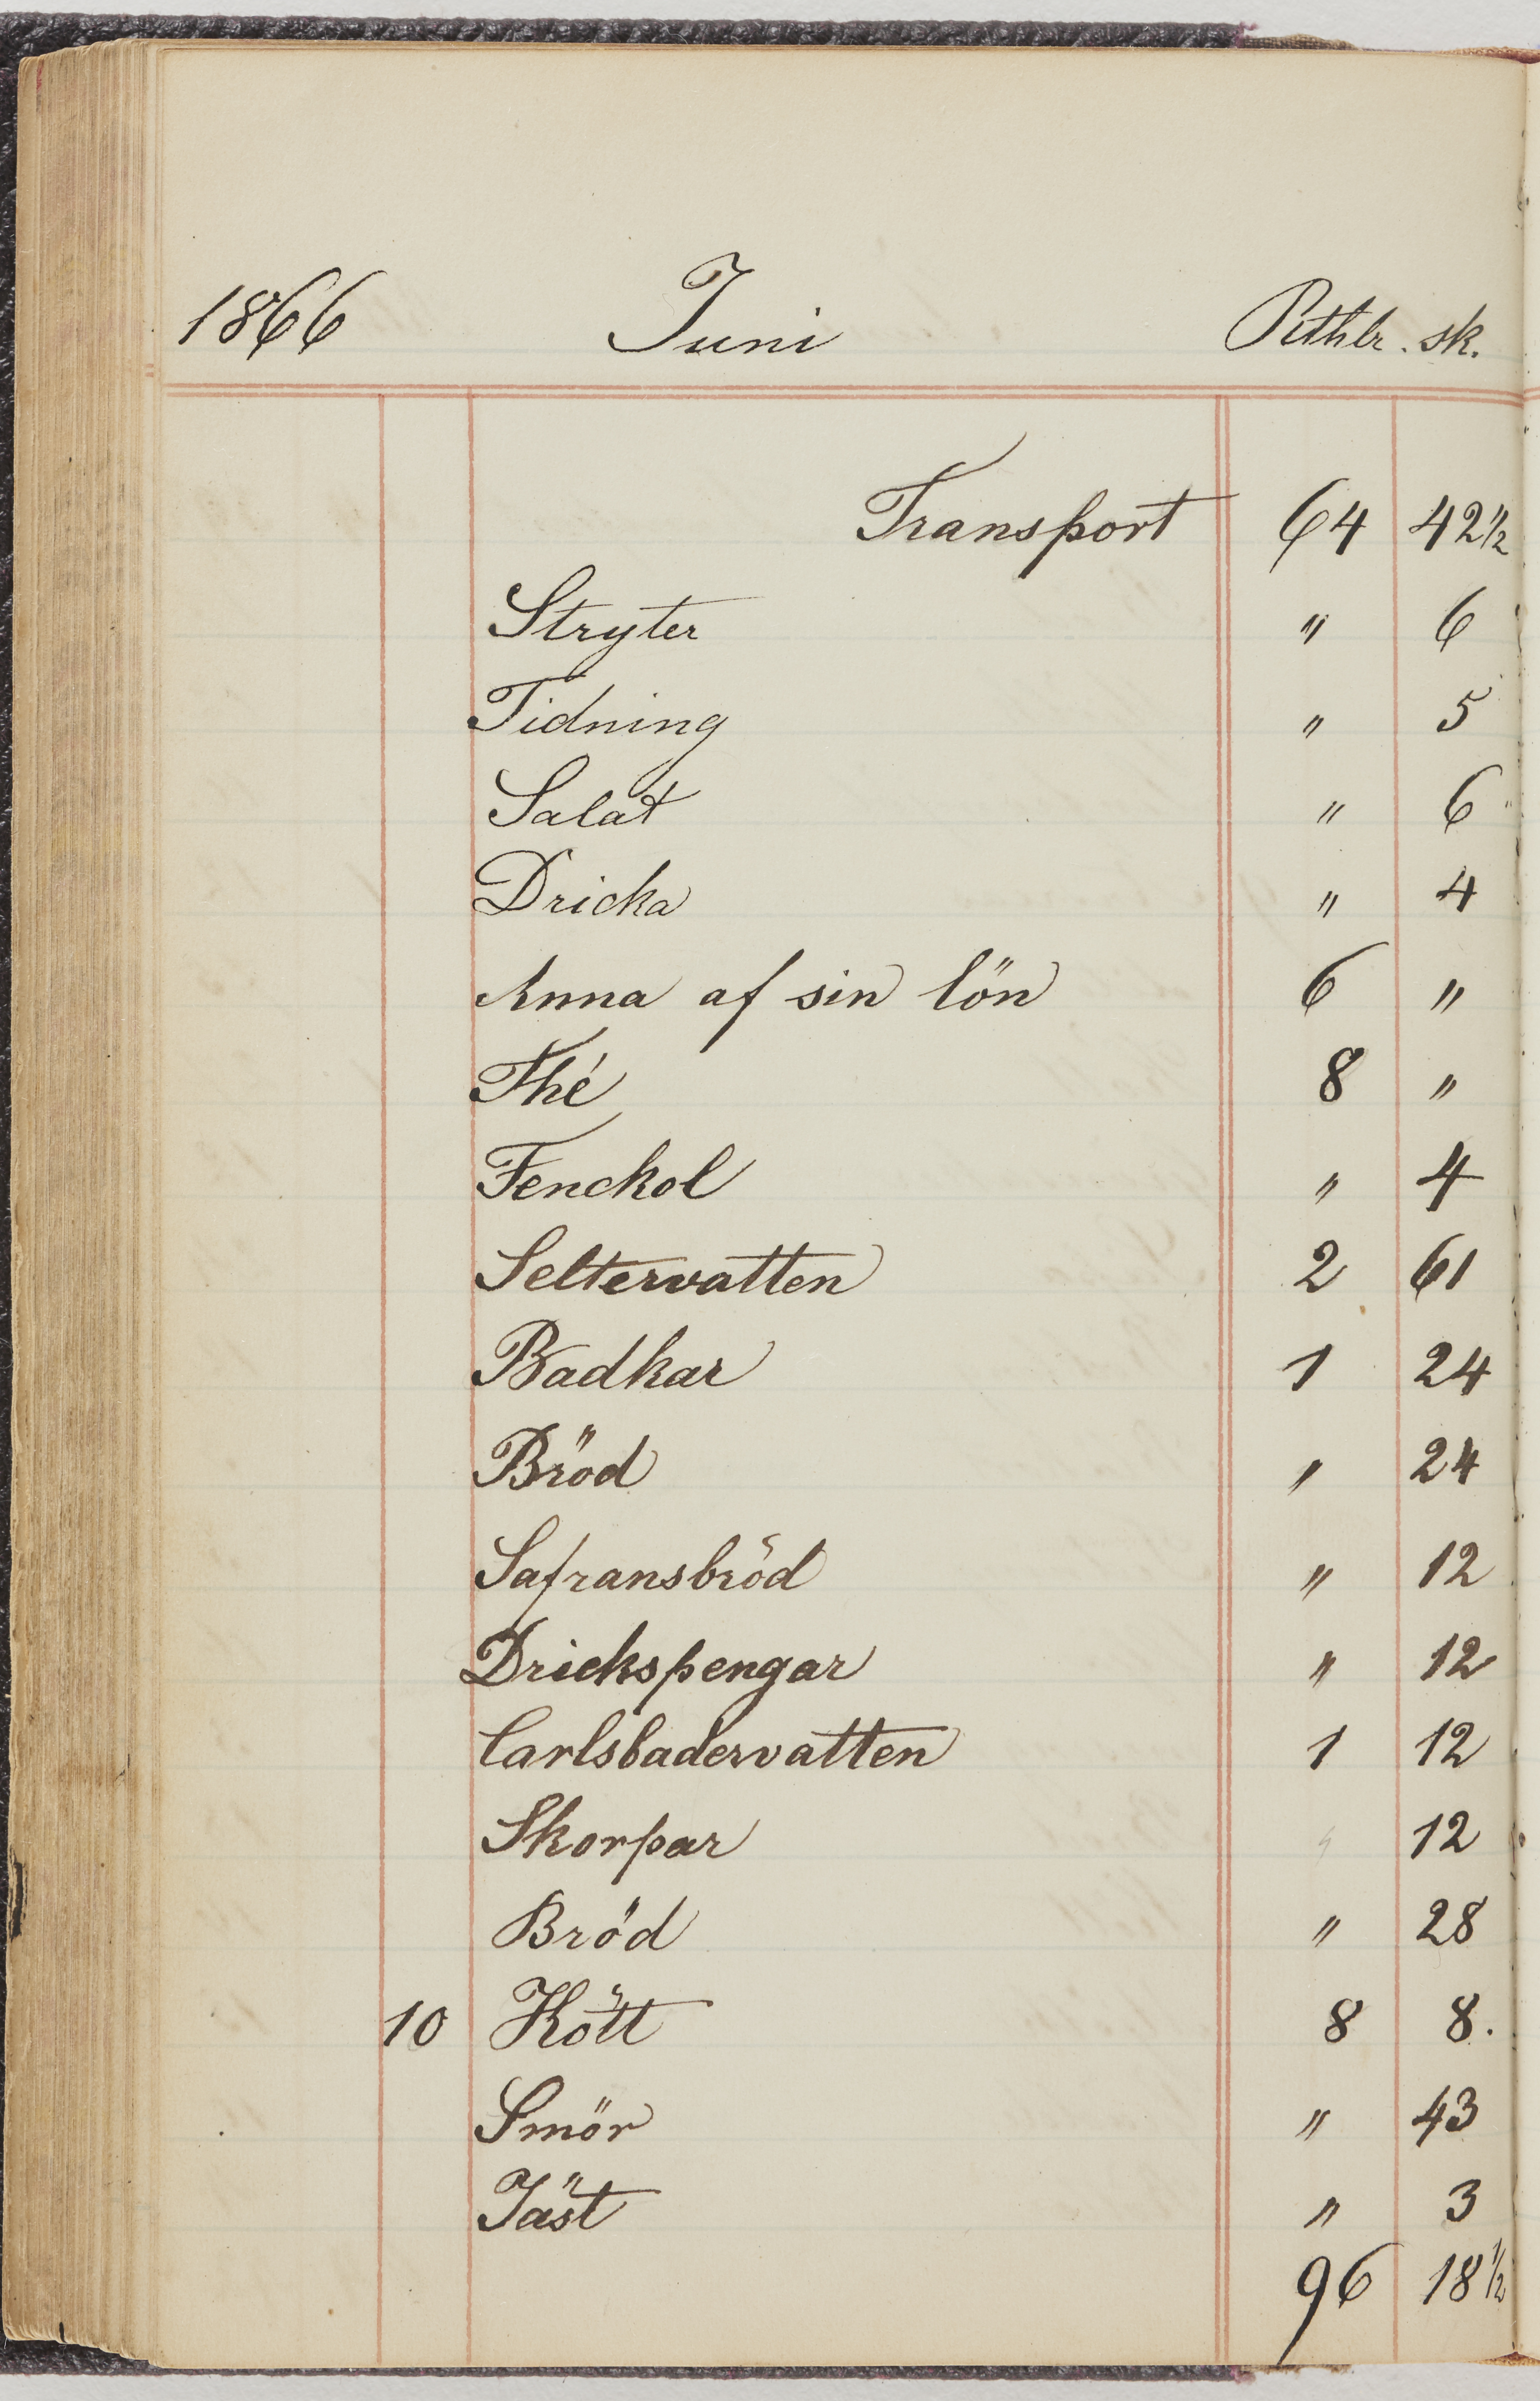 1866 Juni Rithlr. sk.
Transport 64 42 1/2
Stryter " 6
Tidning " 5
Salat " 6
Dricka " 4
Anna af sin lön 6 "
Thé 8 "
Fenckol " 4
Seltervatten 2 61
Badkar 1 24
Bröd " 24
Safransbröd " 12
Drickspengar " 12
Carlsbadervatten 1 12
Skorpar 12
Bröd " 28
10 Kött 8 8.
Smör " 43
Jäst " 3
96 18 1/2